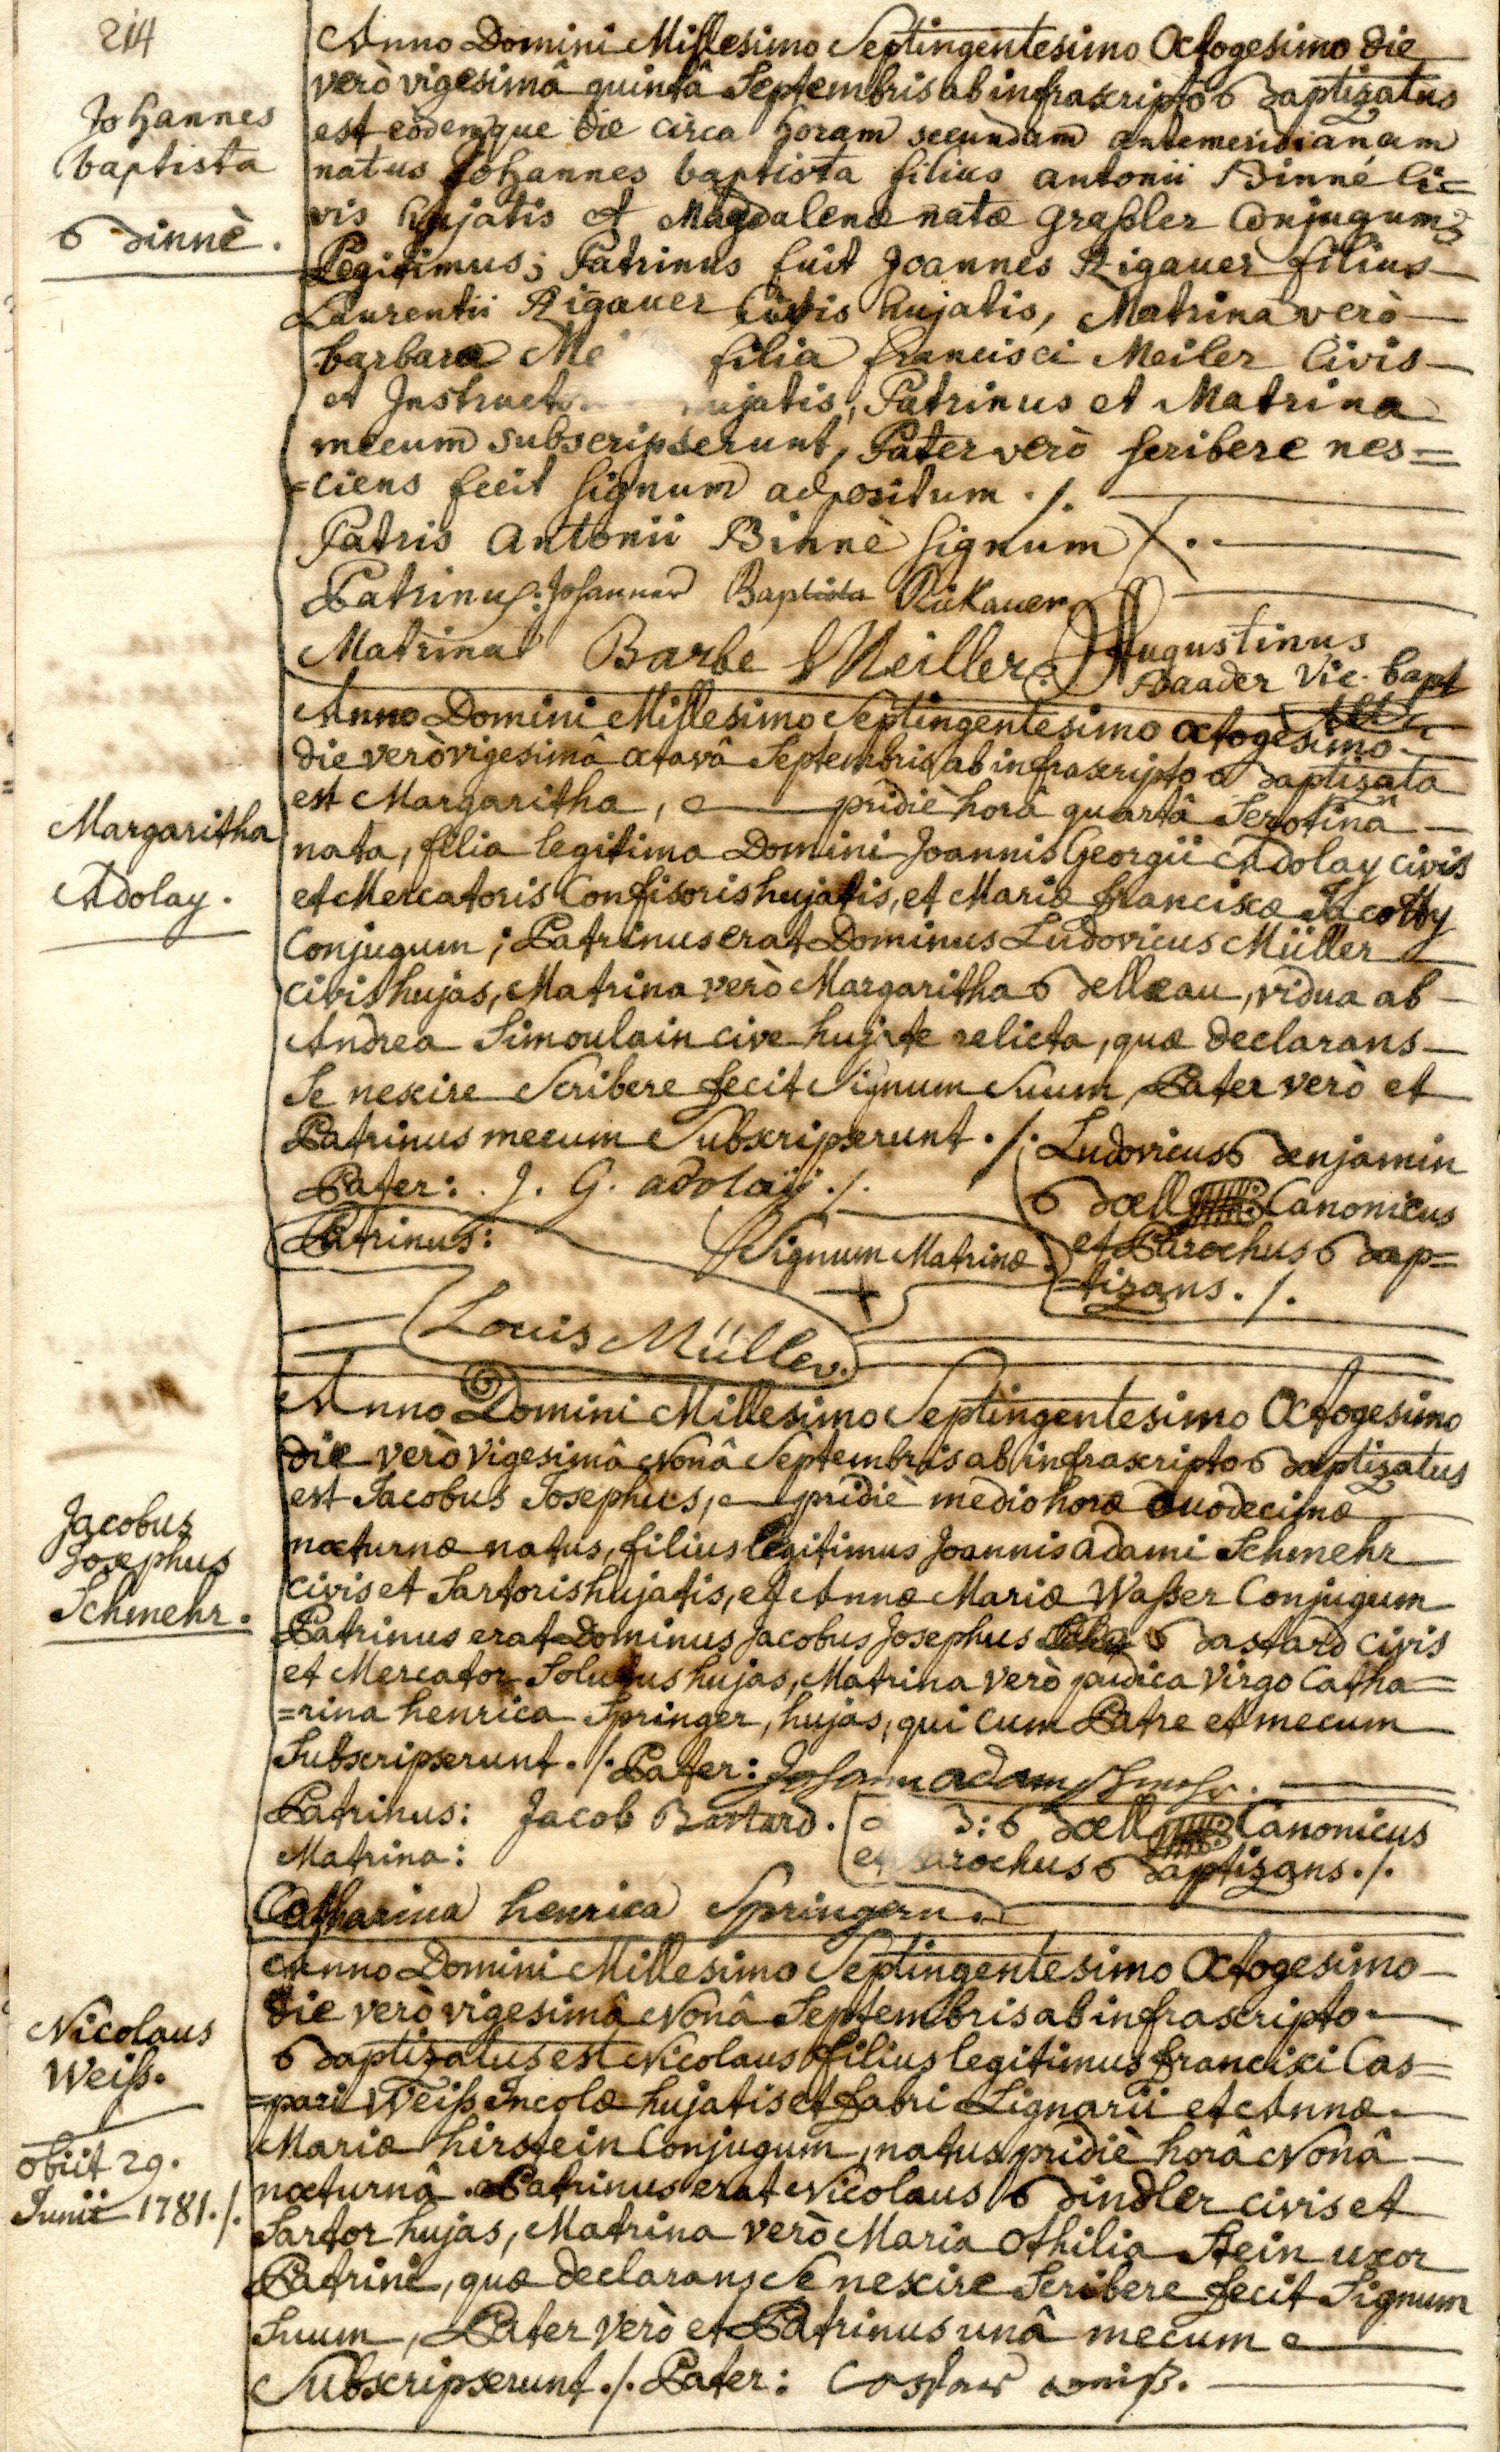 214
Anno Domini Millesimo Septingentesimo Octogesimo die
verò vigesimâ quintâ Septembris ab infrascripto Baptizatus
est eôdemque die circa horam secundam antemeridianam
natus Johannes baptista filius antonii Binné Ci=
vis hujatis et Magdalenæ natæ Graßler Conjugum
Legitimus; Patrinus fuit Joannes Rigauer filius
Laurentii Rigauer Civis hujatis, Matrina verò
barbara Me filia francisci Meiler Civis
et Instructo hujatis, Patrinus et Matrina
mecum subscripserunt, Pater verò scribere nes=
=ciens fecit signum adpositum ./.
Patris Antonii Binnè signum X..
Patrinus: Johannes Baptista Rükauer
Matrina Barbe Meiller. Augustinus
Baader Vic. bapt
Johannes
baptista
Binnè.
Anno Domini Millesimo Septingentesimo octogesimo
die verò vigesimâ octavâ Septembris ab infrascripto Baptizata
est Margaritha, pridiè horâ quartâ Serotinâ
nata, filia legitima Domini Joannis Georgii Adolay civis
et Mercatoris Confisoris hujatis, et Mariæ franciscæ Jacotty
Conjugum; Patrinus erat Dominus Ludovicus Müller
civis hujas, Matrina verò Margaritha Belleau, vidua ab
Andrea Simoulain cive hujate relicta, quæ declarans
Se nescire Scribere fecit Signum Suum, Pater verò et
Patrinus mecum Subscripserunt ./. Ludovicus Benjamin
Pater: J. G. adolaÿ ./. Böll Canonicus
Patrinus: Signum Matrinæ et Parochus Bap=
+ =tizans ./.
Louis Müller.
Margaritha
Adolay.
Anno Domini Millesimo Septingentesimo Octogesimo
die verò Vigesimâ Nonâ Septembris ab infrascripto Baptizatus
est Jacobus Josephus, pridiè medio horæ duodecimæ
nocturnæ natus, filius legitimus Joannis adami Schmehr
civis et Sartoris hujatis, et Annæ Mariæ Waßer Conjugum
Patrinus erat Dominus Jacobus Josephus Bastard civis
et Mercator Solutus hujas, Matrina verò pudica Virgo Catha=
=rina henrica Springer, hujas, qui cum Patre et mecum
Subscripserunt ./. Pater: Johann adam Schmehr.
Patrinus: Jacob Bastard. B: Böll Canonicus
Matrina: et Parochus Baptizans ./.
Catharina henrica Springern.
Jacobus
Josephus
Schmehr.
Anno Domini Millesimo Septingentesimo Octogesimo
die verò vigesimâ Nonâ Septembris ab infrascripto
Baptizatus est Nicolaus filius legitimus francisci Cas=
=pari Weiß Incolæ hujatis et fabri Lignarii et Annæ
Mariæ hirstein Conjugum, natus pridiè horâ Nonâ
nocturnâ. Patrinus erat Nicolaus Bindler civis et
Sartor hujas, Matrina verò Maria Othilia Stein uxor
Patrini, quæ declarans Se nescire Scribere fecit Signum
Suum, Pater verò et Patrinus unâ mecum
Subscripserunt ./. Pater: Caspar weiß.
Nicolaus
Weiß.
obiit 29.
Junii 1781 ./.